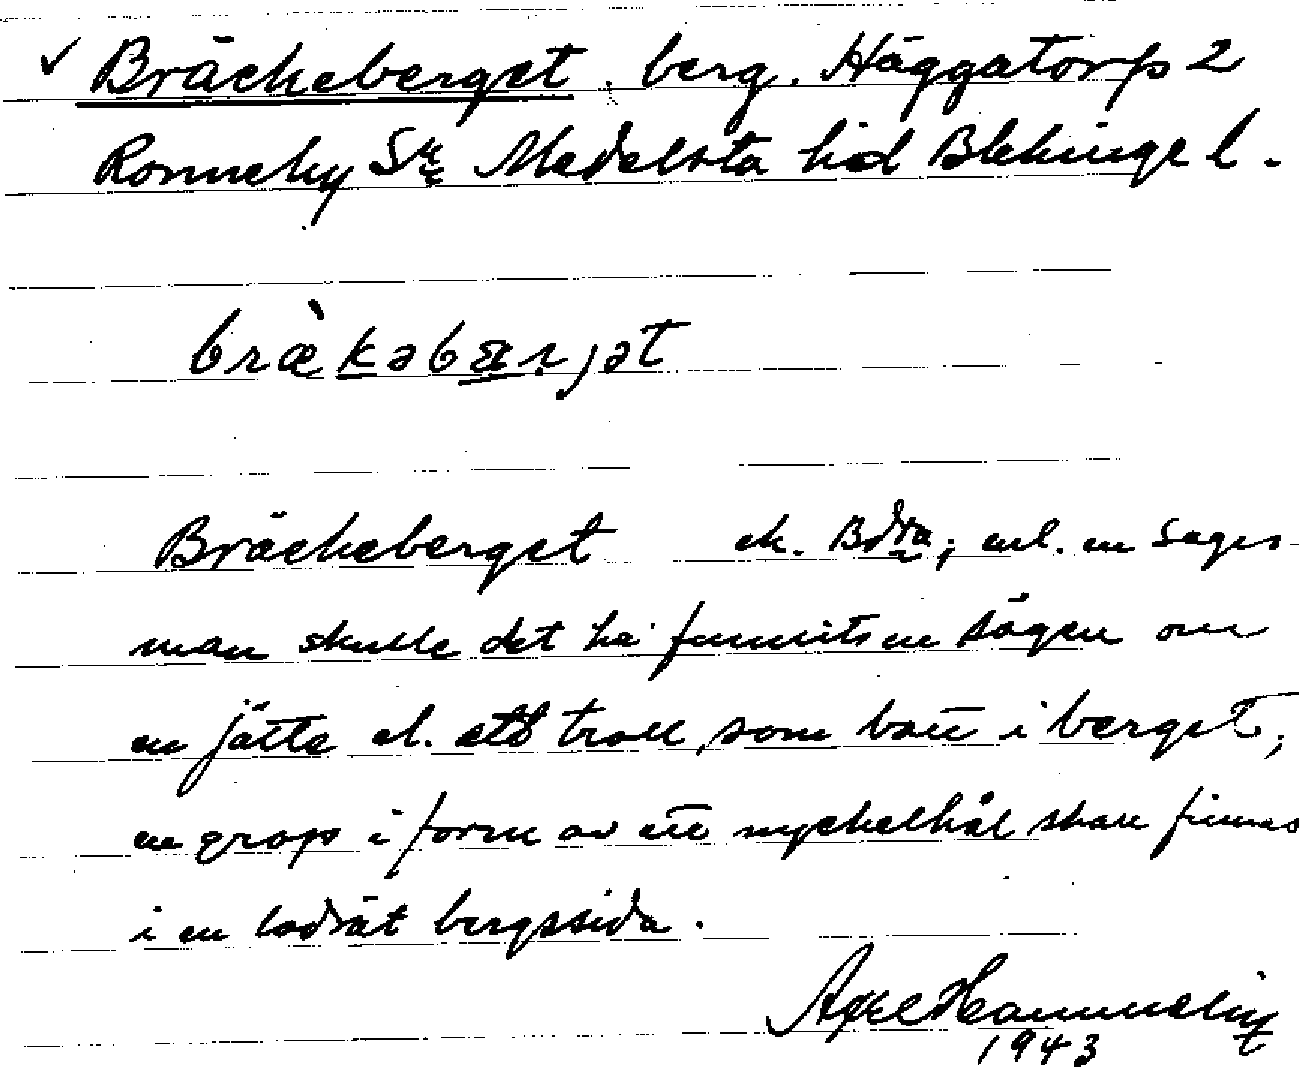 ✓ Bräckeberget. berg. Häggatorp 2
Ronneby Sn Medelsta hd Blekinge l.
bræ̀kəbærjət
Bräckeberget ek. Bdra; enl. en sages-
man skulle det ha funnits en sägen om
en jätte el. ett troll, som bott i berget;
en grop i form av ett nyckelhål skall finnas
i en lodrät bergssida.
Axel
1943